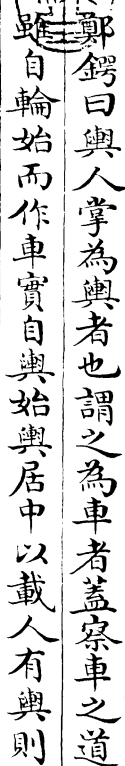 鄭鍔曰輿人掌為輿者也謂之為車者蓋察車之道
雖自輪始而作車實自輿始輿居中以載人有輿則